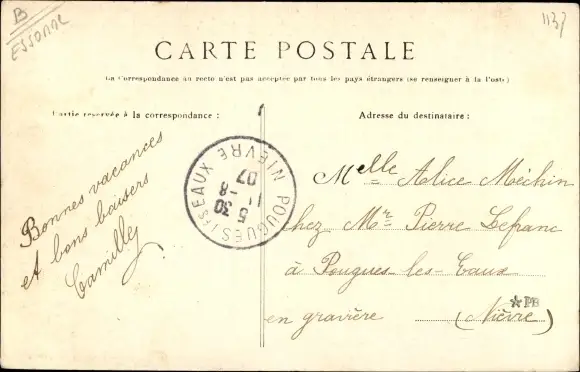 B
ESSONNE
1137
CARTE POSTALE
La Correspondance au recto n'est pas acceptée par tous les pays étrangers (se renseigner à la Poste)
Partie reservée à la correspondance :
Adresse du destinataire :
Bonnes vacances
et bons baisers
Camille
POUGUES-LES-EAUX NIEVRE
5 30
11 -8
07
Melle Alice Méchin
chez Mr Pierre Lefranc
à Pougues-les-Eaux
en gravière (Nièvre)
*PB